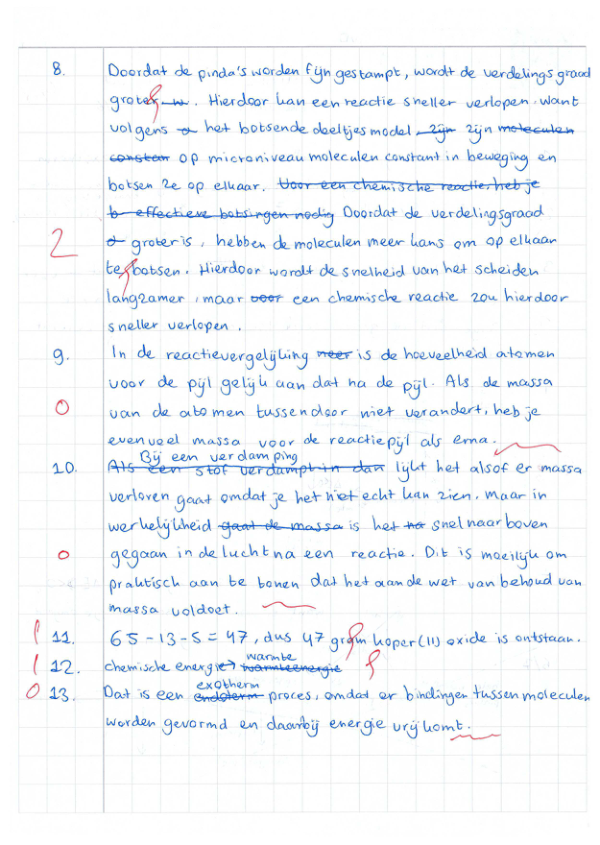 8. Doordat de pinda's worden fijn gestampt, wordt de verdelingsgraad
groter. Hierdoor kan een reactie sneller verlopen want
volgens het botsende deeltjesmodel zijn zijn moleculen
constant op microniveau moleculen constant in beweging en
botsen ze op elkaar. Voor een chemische reactie heb je
effectieve botsingen nodig Doordat de verdelingsgraad
2 groter is, hebben de moleculen meer kans om op elkaar
te botsen. Hierdoor wordt de snelheid van het scheiden
langzamer, maar voor een chemische reactie zou hierdoor
sneller verlopen.
9. In de reactievergelijking is de hoeveelheid atomen
voor de pijl gelijk aan dat na de pijl. Als de massa
0 van de atomen tussendoor niet verandert, heb je
evenveel massa voor de reactiepijl als erna.
Bij een verdamping
10. Als een stof verdampt in dan lijkt het alsof er massa
verloren gaat omdat je het niet echt kan zien, maar in
werkelijkheid gaat de massa is het snel naar boven
0 gegaan in de lucht na een reactie. Dit is moeilijk om
praktisch aan te tonen dat het aan de wet van behoud van
massa voldoet.
1 11. 65 - 13 - 5 = 47, dus 47 gram koper(II)oxide is ontstaan.
warmte
1 12. chemische energie → warmteenergie
exotherm
0 13. Dat is een endoterm proces, omdat er bindingen tussen moleculen
worden gevormd en daarbij energie vrijkomt.